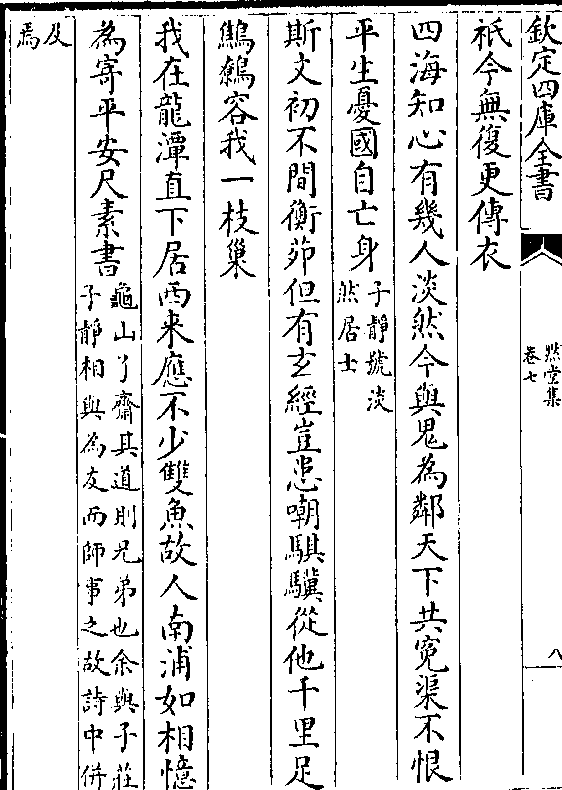 欽定四庫全書
黙堂集
卷七
八
祇今無復更傳衣
四海知心有幾人淡然今與鬼為鄰天下共寃渠不恨
平生憂國自亡身子靜號淡
然居士
斯文初不間衡茆但有玄經豈患嘲騏驥從他千里足
鷦鷯容我一枝巢
我在龍潭直下居西來應不少雙魚故人南浦如相憶
為寄平安尺素書龜山了齋其道則兄弟也余與子莊
子靜相與為友而師事之故詩中併
及
焉